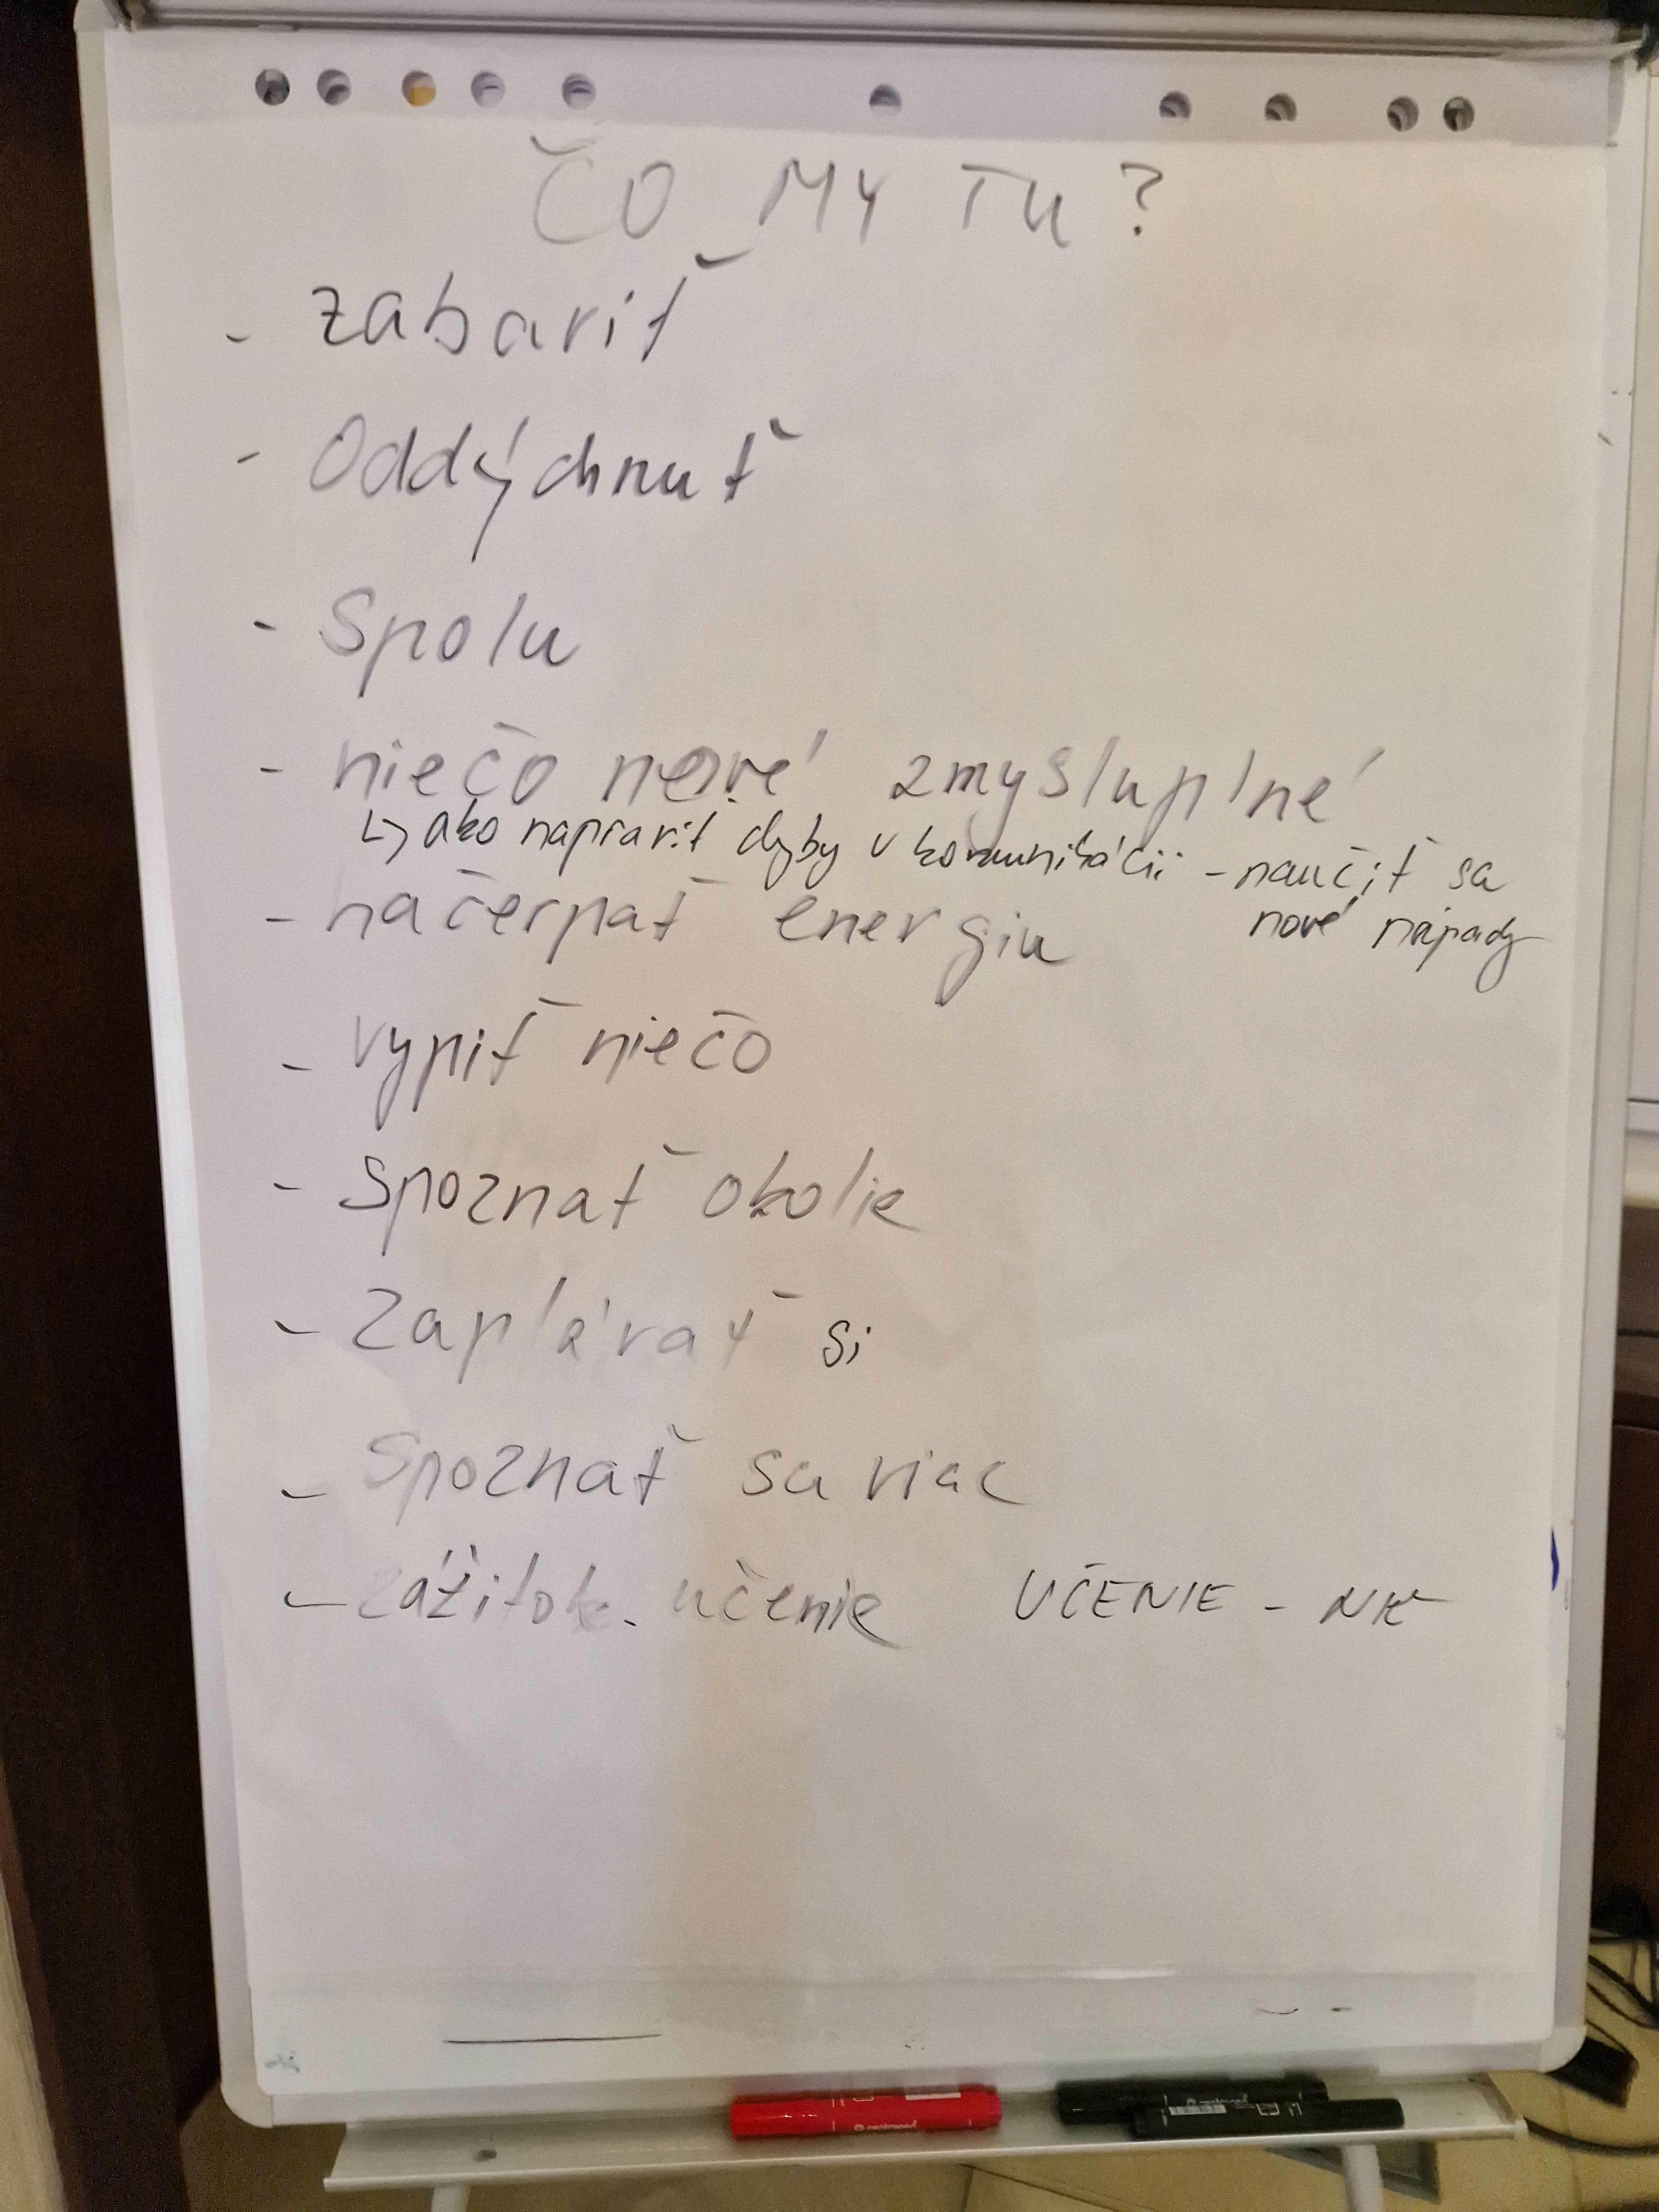 ČO MY TU ?
- zabaviť
- Oddýchnuť
- Spolu
- niečo nové zmysluplné
↳ ako napraviť chyby v komunikácii - naučiť sa
nové nápady
- načerpať energiu
- vypiť niečo
- Spoznať okolie
- Zaplávať si
- Spoznať sa viac
- zážitok. učenie UČENIE - NIE
centropen